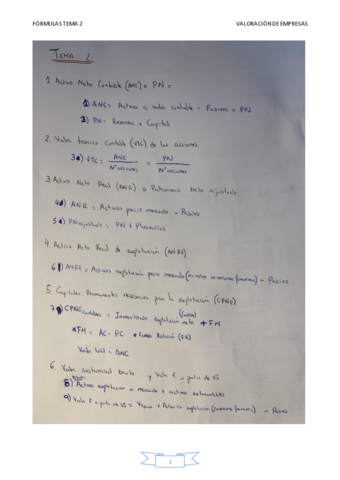 FÓRMULAS TEMA 2 VALORACIÓN DE EMPRESAS
TEMA 2.
1. Activo Neto Contable (ANC) = PN =
1) ANC = Activos a valor contable - Pasivos = PN
2) PN = Reservas + Capital
2. Valor teórico Contable (VTC) de las acciones.
3) VTC = ANC / Nº acciones = PN / Nº acciones
3. Activo Neto Real (ANR) o Patrimonio Neto ajustado
4) ANR = Activos precio mercado - Pasivo
5) PN ajustado = PN + Plusvalías
4. Activo Neto Real de explotación (ANRE)
6) ANRE = Activos explotación precio mercado - Pasivo
5. Capitales Permanentes necesarios para la explotación (CPNE)
7) CPNE = Inmovilizado explotación neto + FM
FM = AC - PC
Valor total = ANC
6. Valor sustancial bruto y Valor
8) Activos explotación a mercado
9) Valor = + Activos explotación - Pasivo
1